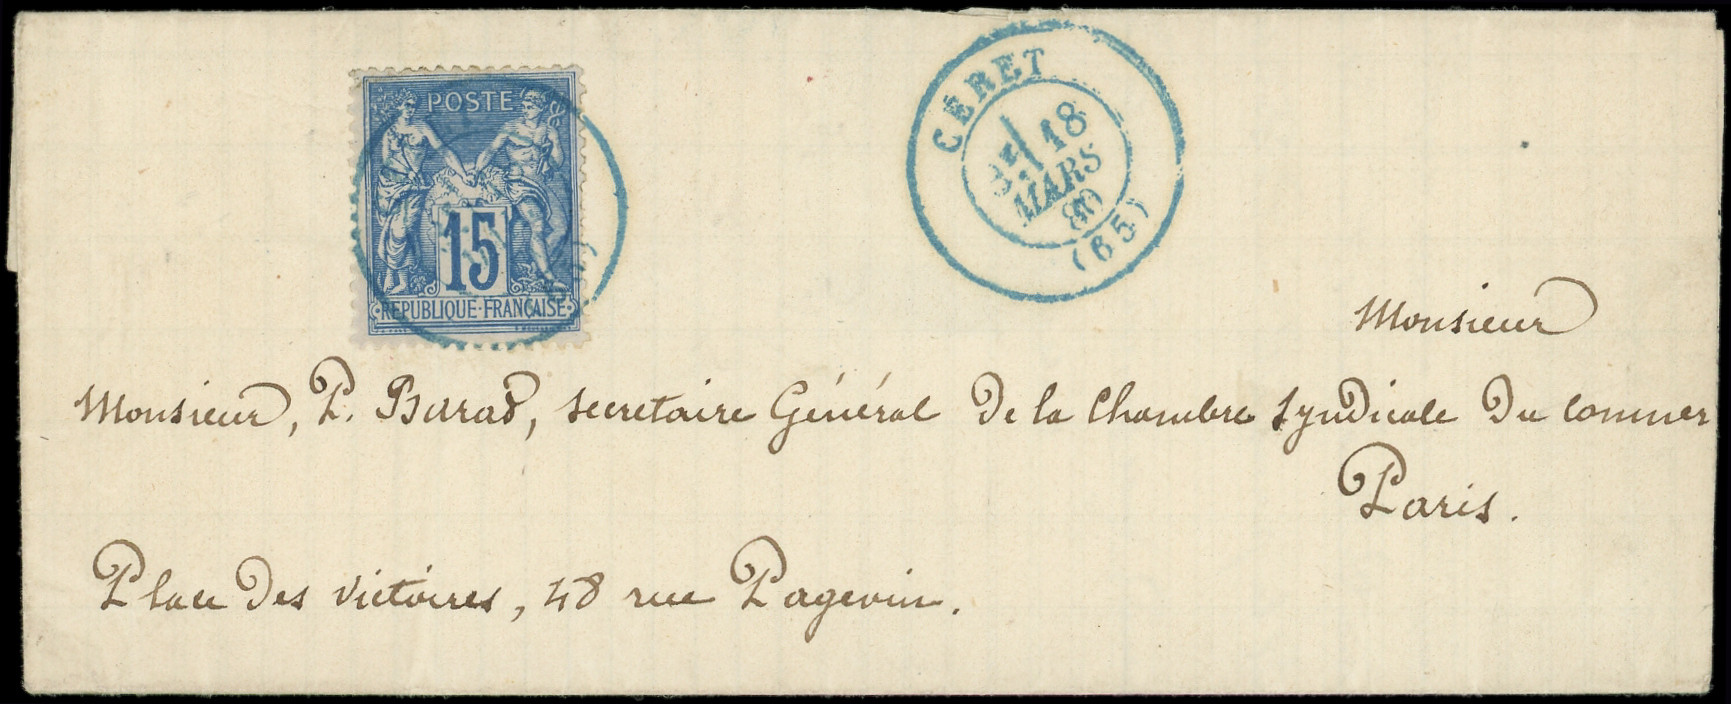 POSTE
15
RÉPUBLIQUE FRANÇAISE
CÉRET
18
MARS
80
(65)
Monsieur
Monsieur, P. Barad, secretaire Général De la Chambre Syndicale Du Commer
Paris.
Place Des Victoires, 48 rue Pagevin.